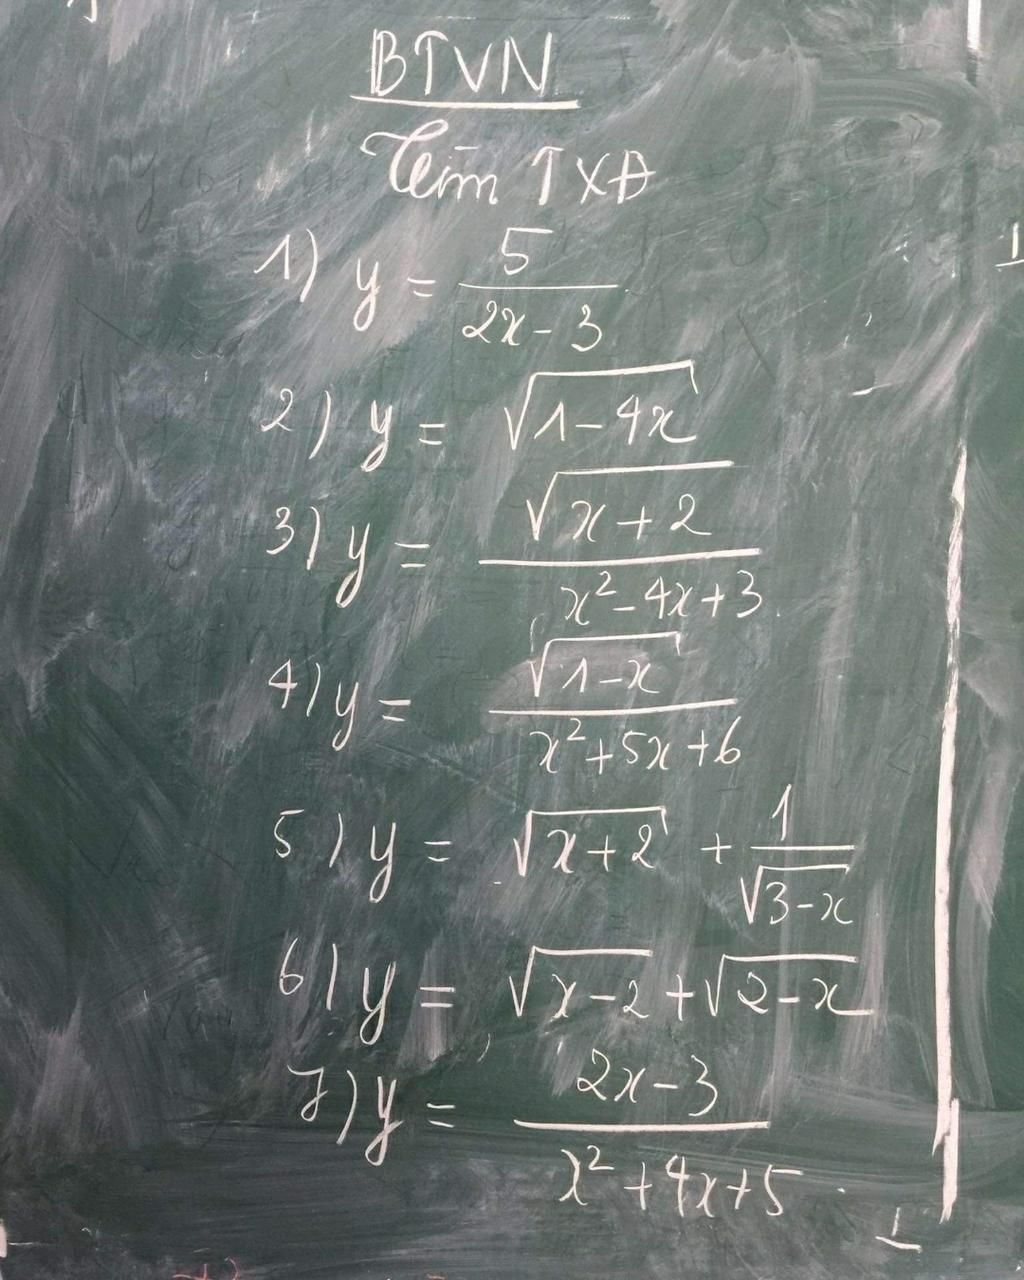 BTVN
Tìm TXĐ
1) y = 5/(2x-3)
2) y = √(1-4x)
3) y = √(x+2)/(x²-4x+3)
4) y = √(1-x)/(x²+5x+6)
5) y = √(x+2) + 1/√(3-x)
6) y = √(x-2) + √(2-x)
7) y = (2x-3)/(x²+4x+5)